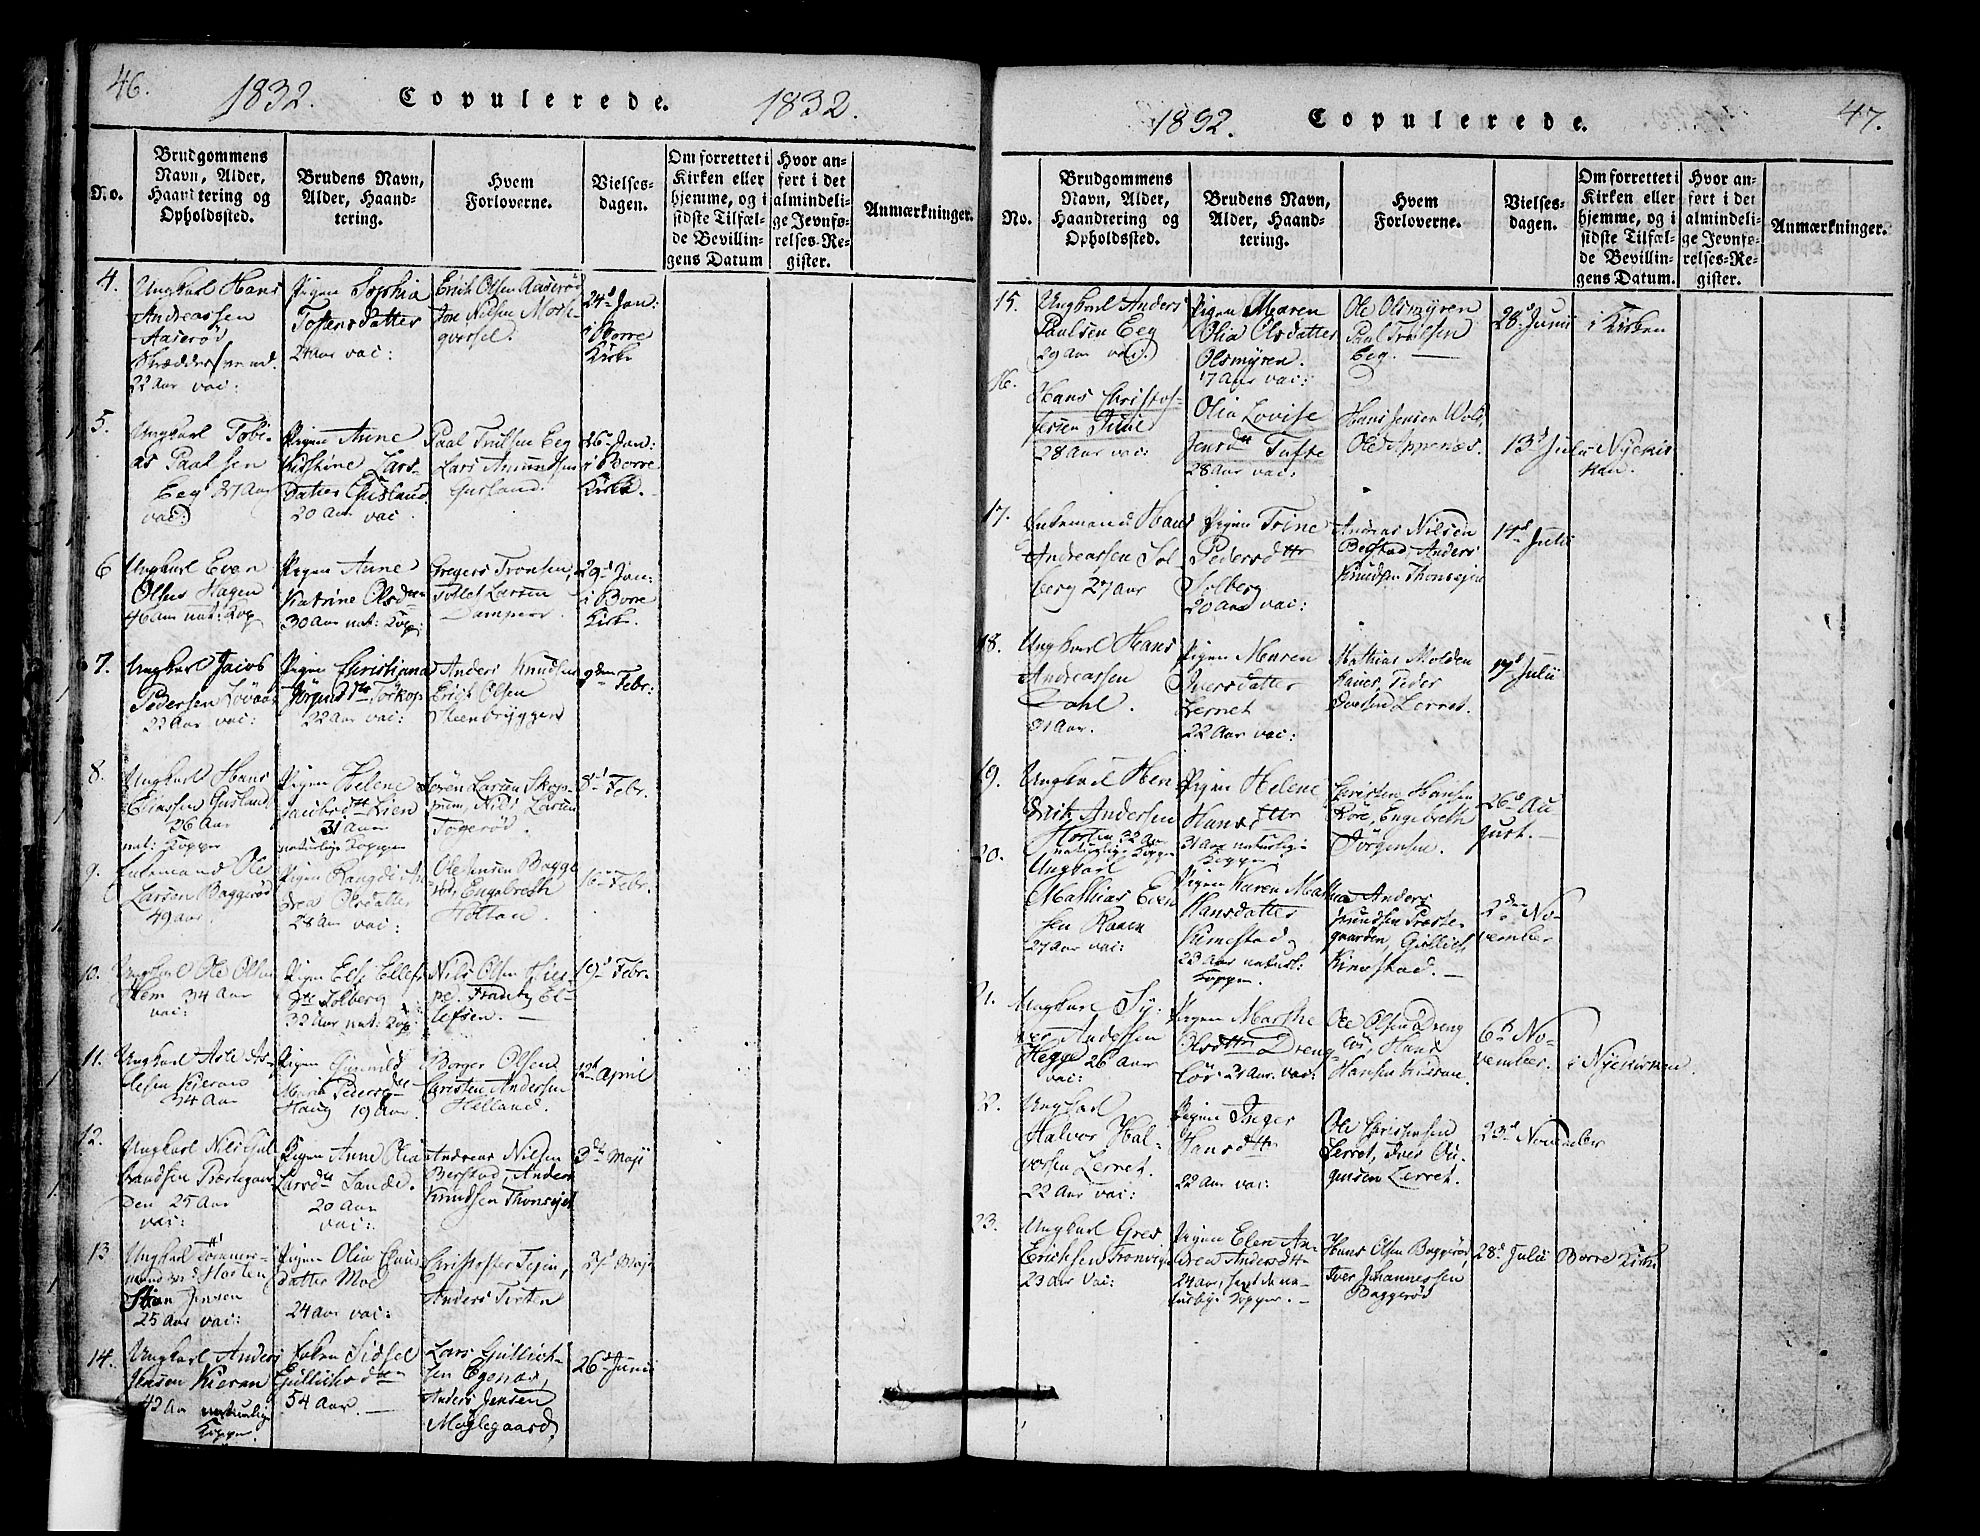 46.
1832. Copulerede. 1832.
No.
Brudgommens
Navn, Alder,
Haandtering og
Opholdssted.
Brudens Navn,
Alder, Haand-
tering.
Hvem
Forloverne.
Vielses-
dagen.
Om forrettet i
Kirken eller
hjemme, og i
sidste Tilfæl-
de Bevillin-
gens Datum
Hvor an-
ført i det
almindeli-
ge Jevnfø-
relses-Re-
gister.
Anmærkninger.
4.
Ungkarl Hans
Andreassen
Aaserød
Skrædders
22 Aar vac:
Pigen Sophia
Tostensdatter
24 Aar vac:
Erich Olsen Aaserød
Jon Nilsen
24d Jan:
i Borre
Kirke
5.
Ungkarl Tobi-
as Paalsen
Eeg 27 Aar
vac:
Pigen Anne
Kirstine Lars-
datter Gusland
20 Aar vac
Paal Trulsen Eeg
Lars Amundsen
Gusland.
26d Jan:
i Borre
Kirke.
6
Ungkarl Even
Olsen Hagen
46 Aar nat: Kop
Pigen Anne
Katrine Olsdtr
30 Aar nat: Kop:
Gregers Tronsen,
Larsen
29d Jan:
i Borre
Kirke.
7.
Ungkarl Jacob
Pedersen
22 Aar vac:
Pigen Christiana
22 Aar vac:
Anders Knudsen
Erich Olsen
Steenbryggen
9den Febr:
8.
Ungkarl Hans
Gusland
26 Aar
nat: Kopper
Pigen Helene
Jacobsdtr Lien
31 Aar
naturlige Kopper
Sören Larsen Skop-
pum, Nils Larsen
Togerød.
8d Febr.
9.
Enkemand Ole
Larsen Baggerød
49 Aar.
Pigen
Olsdatter
28 Aar vac:
Ole Jensen Bagge
rød, Engebreth
Holtan.
16 Febr.
10.
Ungkarl Ole Olsen
Hem 34 Aar
vac:
Pigen Else Ellefs
dtr Solberg
32 Aar nat: Kop:
Nils Olsen
Frantz El-
lefsen.
19d Febr.
11.
Ungkarl Asle As-
lesen Kieran
34 Aar
Pigen Gunnild
Marie Pedersdtr
Haug 19 Aar
Borger Olsen
Christen Andersen
Helland.
12d April
12.
Ungkarl Nils Gul
brandsen Præstegaar
den 25 Aar
vac:
Pigen Anne Olia
Larsdtr Sande.
20 Aar
vac:
Andreas Nilsen
Berstad, Anders
Knudsen Thonsejet
3d Maji
13
Ungkarl Tømmer-
mand Horten
Jensen
25 Aar vac:
Pigen Olia
datter Moe
24 Aar vac:
Christoffer
Anders
Maji
14.
Ungkarl Anders
Jensen Kieran
42 Aar naturlige
Kopper.
Enken Sidsel
Gullichsdtr
54 Aar.
Lars Gullich-
sen Egenæs,
Anders Jensen
Møllegaard,
26d Junii
47.
1832. Copulerede.
No.
Brudgommens
Navn, Alder,
Haandtering og
Opholdssted.
Brudens Navn,
Alder, Haand-
tering.
Hvem
Forloverne.
Vielses-
dagen.
Om forrettet i
Kirken eller
hjemme, og i
sidste Tilfæl-
de Bevillin-
gens Datum.
Hvor an-
ført i det
almindeli-
ge Jevnfø-
relses-Re-
gister.
Anmærkninger.
15.
Ungkarl Anders
Paulsen Eeg
29 Aar vac.
Pigen Maren
Olia Olsdatter
Olsmyren.
17 Aar vac:
Ole Olsmyren
Paul Trulsen
Eeg.
28d Junii
i Kirken
16.
Hans Christof-
fersen
28 Aar vac:
Olia Lovise
Jensdtr Tufte
28 Aar vac:
Hans Jensen Wold,
Ole
13d Julii
i Nykir
ken.
17.
Enkemand Hans
Andreassen Sol
berg 27 Aar
Pigen Trine
Pedersdtr
Solberg
20 Aar vac:
Andreas Nilsen
Berstad, Anders
Knudsen Thonsejet
14d Julii
18.
Ungkarl Hans
Andreassen
Dahl.
31 Aar.
Pigen Maren
Iversdatter
Lerret
22 Aar vac:
Mathias Molden
hauer, Peder
Iversen Lerret.
Julii
19.
Ungkarl Hen
drik Andersen
Horten 32 Aar
naturlige Kopper
Pigen Helene
Hansdtr
31 Aar naturlige
Kopper
Christen Hansen
Røre, Engebreth
Jörgensen.
26d Au
gust.
20.
Ungkarl
Mathias Even
sen Ramm
27 Aar vac:
Pigen Karen Mathea
Hansdatter
Kimestad
23 Aar naturl:
Kopper.
Anders
Præste-
gaarden, Gullich
Kimestad.
2den No-
vember
21.
Ungkarl Sy-
ver Andersen
Hegge 26 Aar
vac:
Pigen Marthe
Olsdtr Dreng
21 Aar vac:
Ole Olsen Dreng
Hans
Hansen Kieran.
6d No-
vember.
i Nykirken.
22.
Ungkarl
Halvor Hal-
vorsen Lerret.
22 Aar vac:
Pigen Inger
Hansdtr
22 Aar vac:
Ole Christensen
Lerret, Iver Au-
gensen Lerret.
23d November
23.
Ungkarl Gres
Ericksen Tronvigen
23 Aar vac:
Pigen Elen An-
drea Andersdtr
24 Aar, havt de na-
turlige Kopper.
Hans Olsen Baggerød,
Iver Johannessen
Baggerød
28d Julii
Borre Kirke